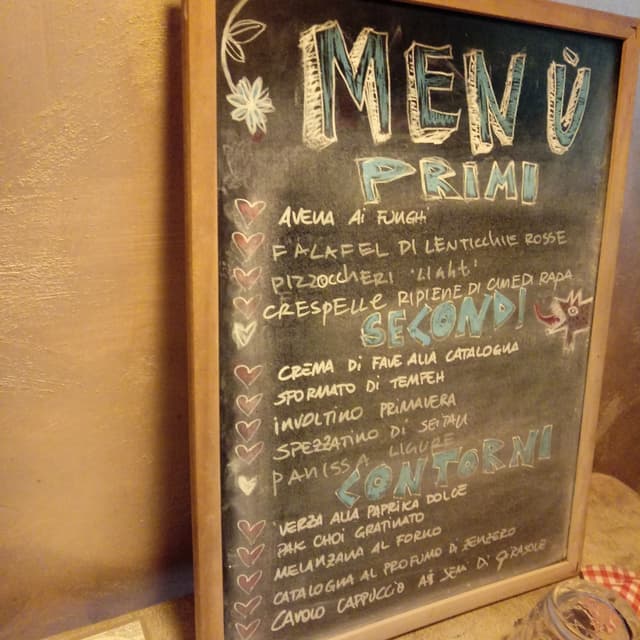 MENÙ
PRIMI
AVENA AI FUNGHI
FALAFEL DI LENTICCHIE ROSSE
PIZZOCCHERI 'LIGHT'
CRESPELLE RIPIENE DI CIME DI RAPA
SECONDI
CREMA DI FAVE ALLA CATALOGNA
SFORMATO DI TEMPEH
INVOLTINO PRIMAVERA
SPEZZATINO DI SEITAN
PANISSA LIGURE
CONTORNI
VERZA ALLA PAPRIKA DOLCE
PAK CHOI GRATINATO
MELANZANA AL FORNO
CATALOGNA AL PROFUMO DI ZENZERO
CAVOLO CAPPUCCIO AI SEMI DI GIRASOLE